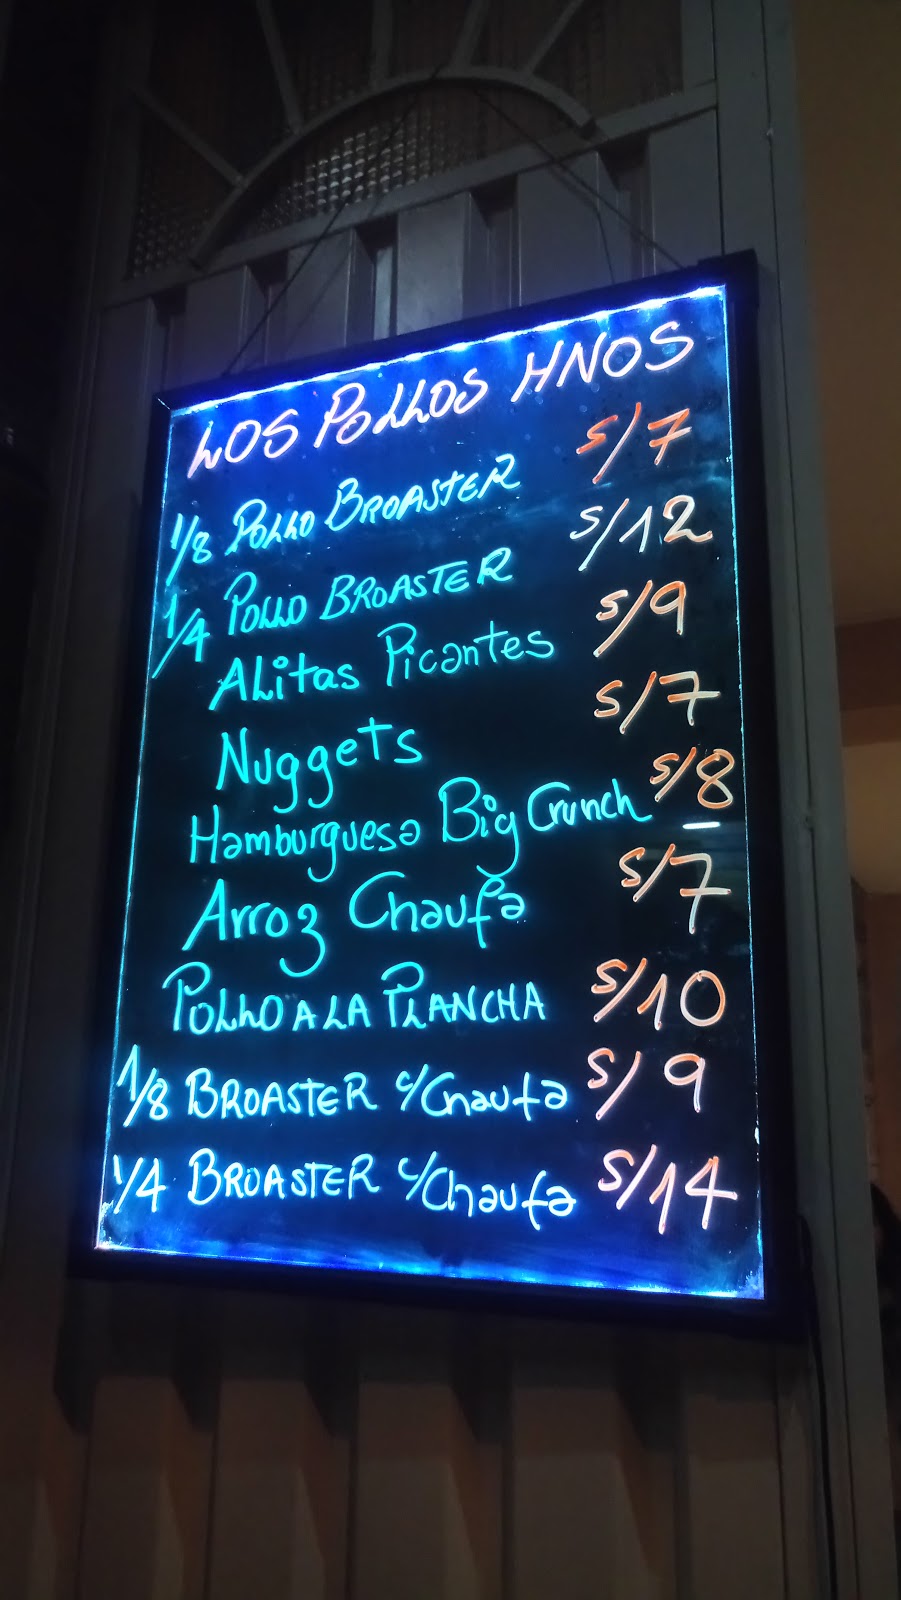 LOS POLLOS HNOS
1/8 POLLO BROASTER S/7
1/4 POLLO BROASTER S/12
Alitas Picantes S/9
Nuggets S/7
Hamburguesa Big Crunch S/8
Arroz Chaufa S/7
POLLO A LA PLANCHA S/10
1/8 BROASTER c/Chaufa S/9
1/4 BROASTER c/Chaufa S/14